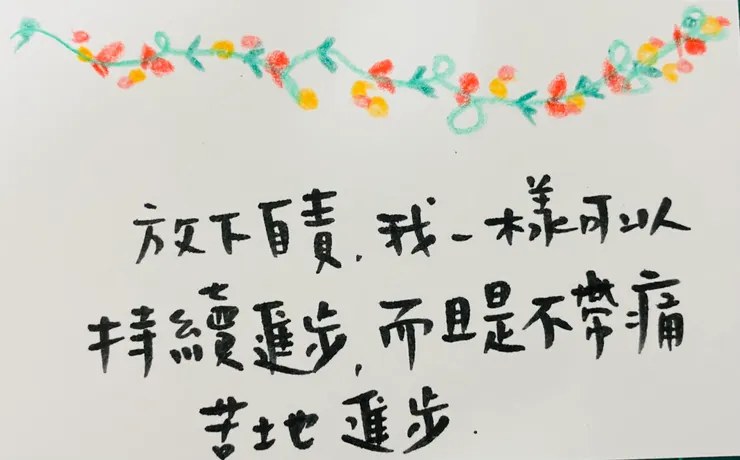 放下自責,我一樣可以
持續進步,而且是不帶痛
苦地進步.